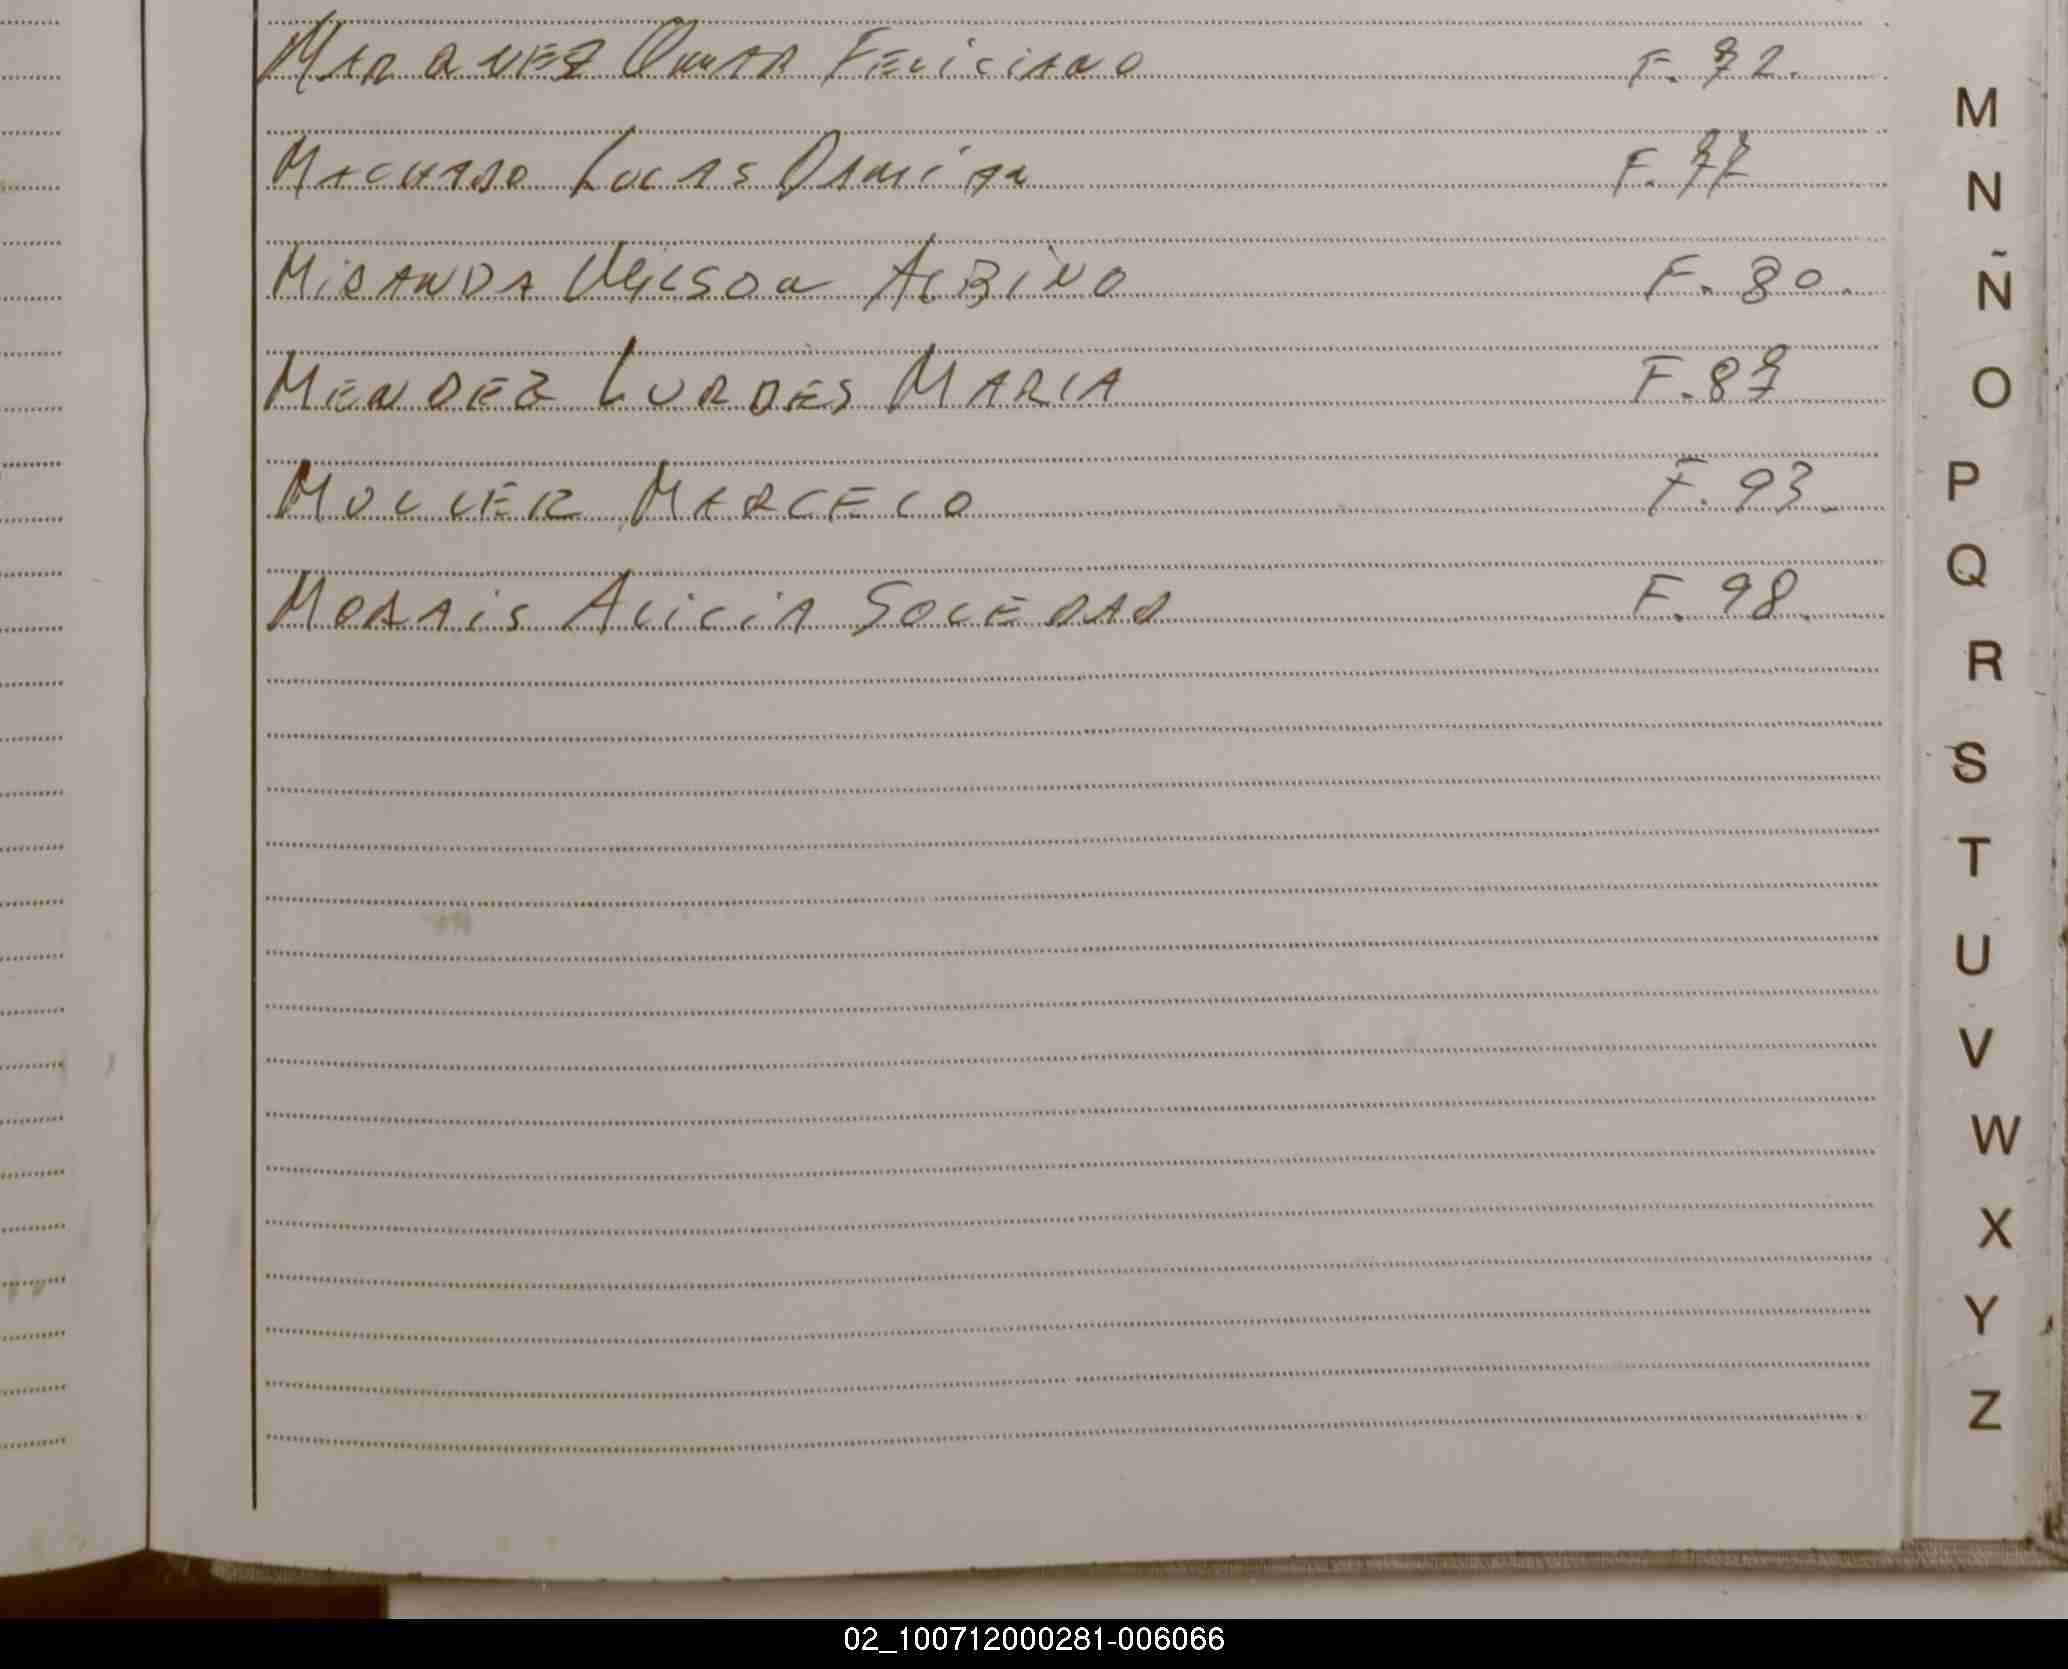 MARQUEZ OMAR FELICIANO F. 72.
MACHADO LUCAS DAMIÁN F. 77
MIRANDA WILSON ALBINO F. 80.
MENDEZ LURDES MARIA F. 87
MULLER MARCELO F. 93.
MORAIS ALICIA SOLEDAD F. 98.
M
N
Ñ
O
P
Q
R
S
T
U
V
W
X
Y
Z
02_100712000281-006066